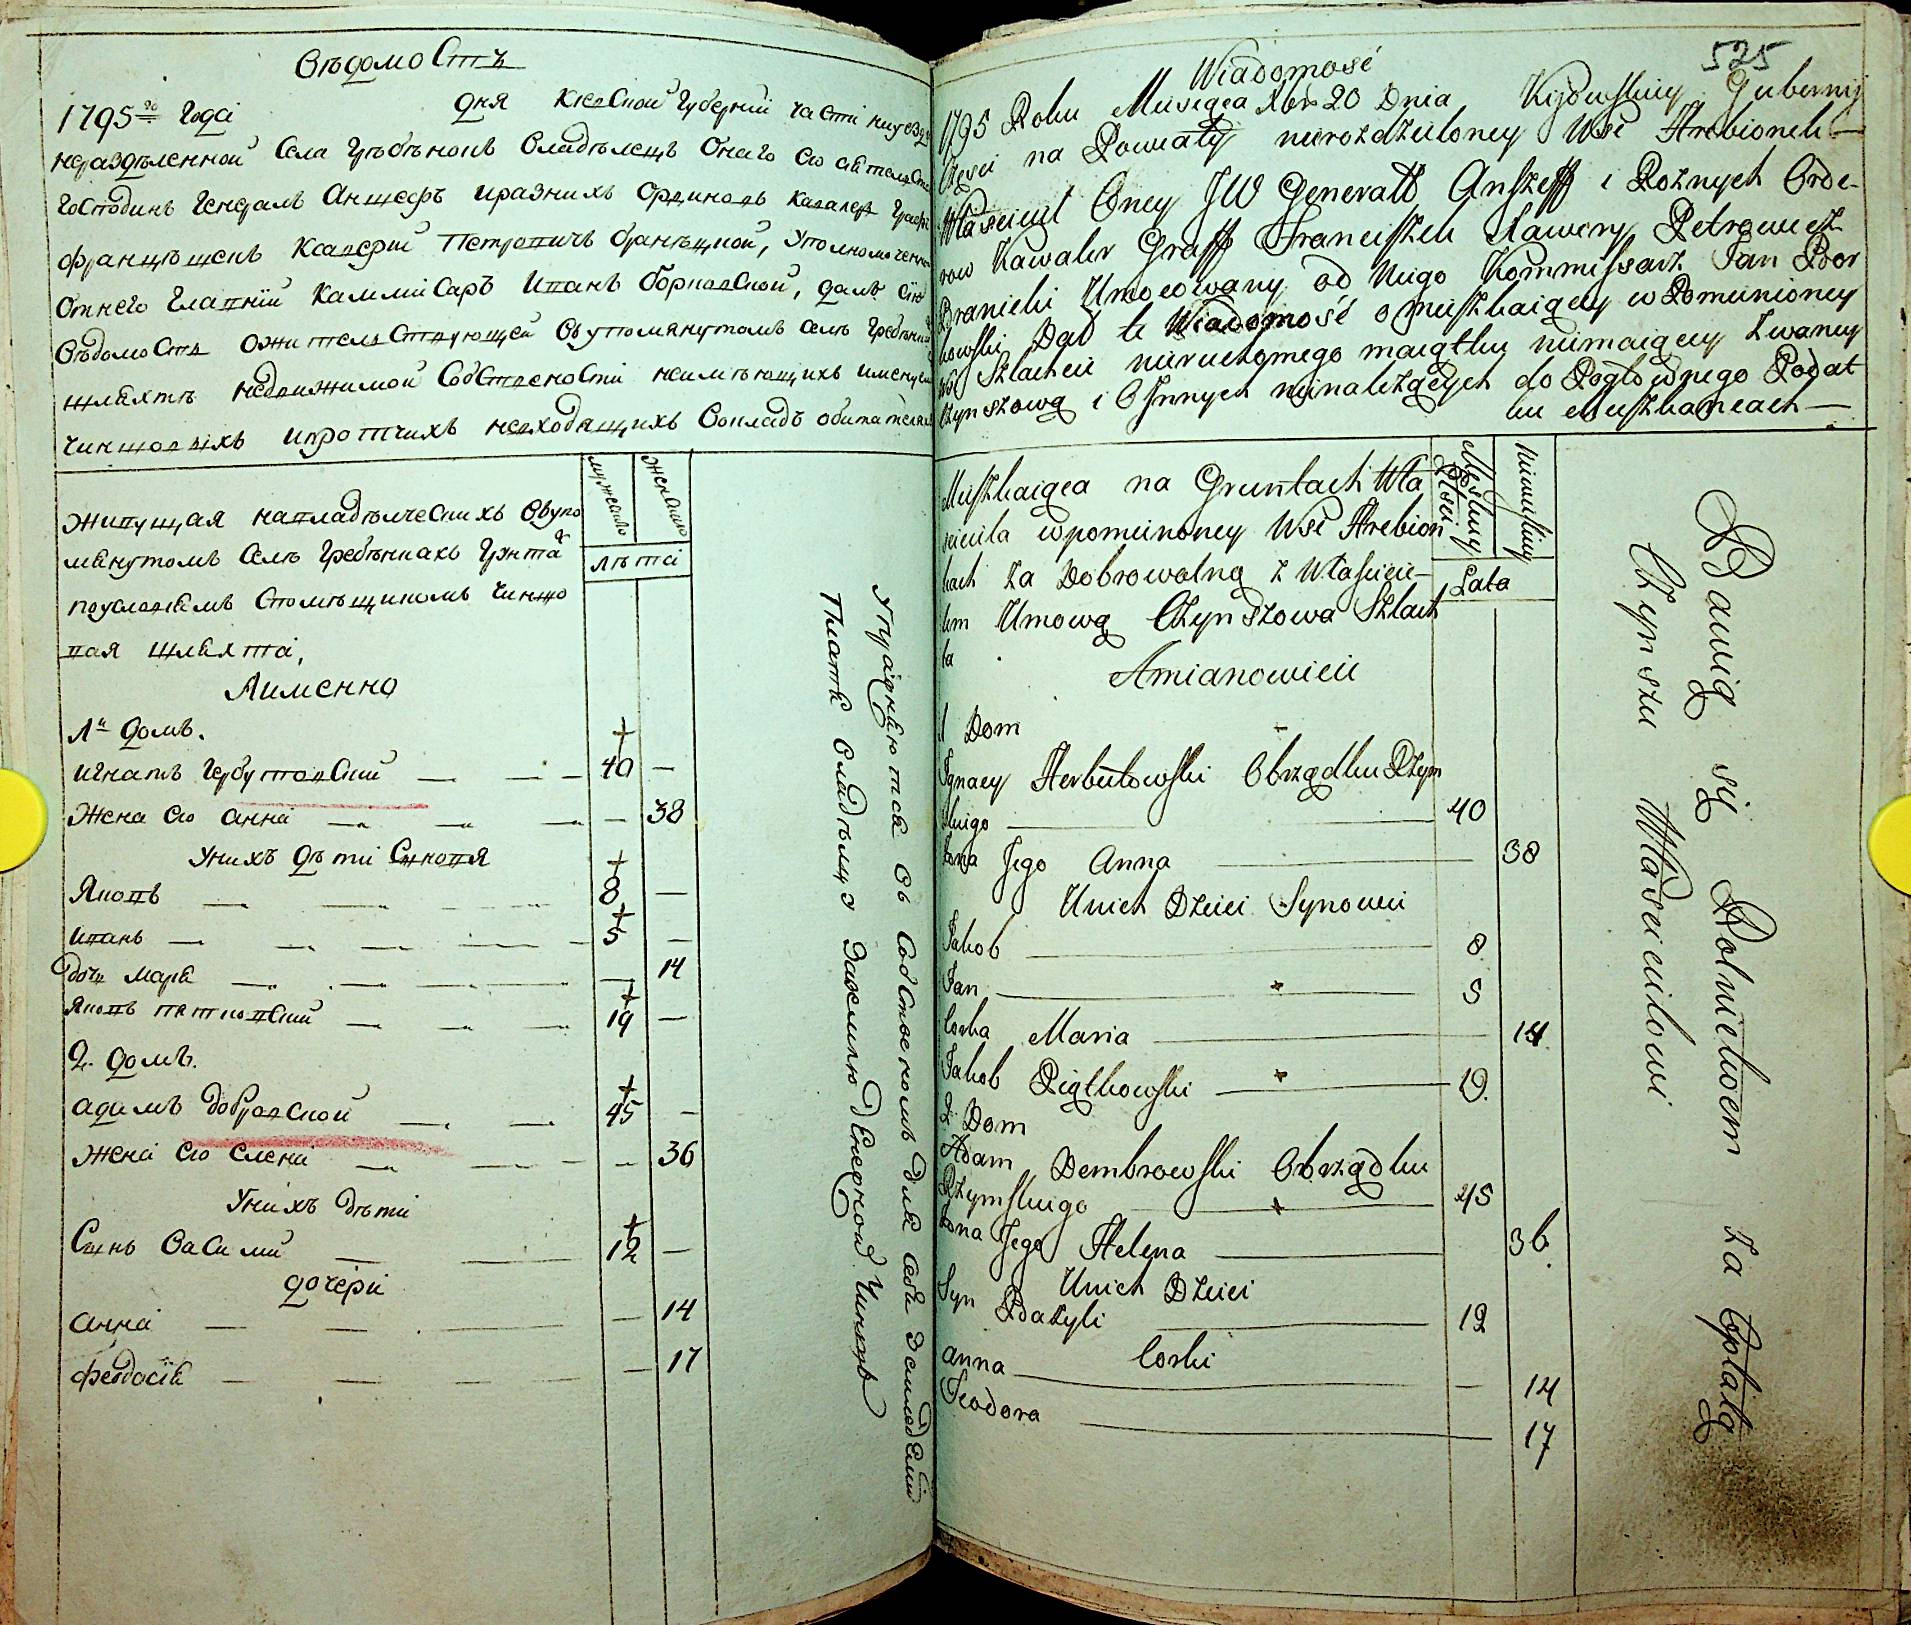 Вѣдомость
1795го Года дня Киевской Губернии части на уезды
неразделенной Села Гребѣнокъ Владѣлецъ Онаго Его сиятельство
Господинъ Генералъ Аншефъ и разныхъОрдиновъ Кавалер Графъ
Францѣшекъ Ксаверий Петровичъ Браницкой, Уполномоченной
Отнего Главний Каммисаръ Иванъ Борковской, далъ сию
Вѣдомость о жительствующей Въ упомянутомъ Селѣ Гребѣнки
шляхтѣ недвижимой Собствености неимѣющихъ имену
Чиншовыхъ и протчихъ невходящихъ Вокладъ обитателях
мужеска
женска
Лѣта
Живущая на владѣлческихъ Въупо
мянутомъ Селѣ Гребѣнкахъ Грунта
х
поусловіямъ Спомѣщикомъ Чиншо
вая шляхта,
Аименно
1й домъ.
Игнатъ Гербутовский — — — 40 —
Жена Его Анна — — — — 38
Унихъ дѣти Сыновя
Яковъ — — — — 8 —
Иванъ — — — — 5 —
дочь Мария — — — — — 14
Яковъ Пятковский — — — 19 —
2. домъ.
Адамъ Добровской — — 45 —
Жена Его Елена — — — — 36
Унихъ дѣти
Сынъ Василий — — 12 —
дочери
Анна — — — — — 14
Феодосія — — — — — 17
Упражняются Въ Собственномъ для Себя Земледелии
Платя Владѣлцу За землю Ежегодной Чиншъ
525
Wiadomość
1795 Roku Miesiąca Xbra 20 Dnia Kijowskiey Gubernij
Części na Powiaty nierozdzieloney Wsi Hrebionek —
Właściciel Oney JW Generałł Anszeff i Rożnych Orde-
row Kawaler Graff Franciszek Xawery Petrowicz
Branicki Umocowany od Niego Kommissarz Jan Bor
kowski Dał tę Wiadomość o mieszkaiącey w Pomienioney
Wsi Szlachcie nieruchomego maiątku niemaiącey Zwaney
Czynszową i Innych nienależących do Pogłownego Podat
ku Mieszkańcach —
Męskiey
Płści
Niewieśćiey
Lata
Mieszkaiąca na Gruntach Wła
sciciela wpomnioney Wsi Hrebion
kach za Dobrowolną z Właścicie-
lem Umową Czynszowa Szlach
ta
Amianowicie
1 Dom
Ignacy Herbutowski Obrządku Rzym
skiego — 40
Żona Jego Anna — 38
Unich Dzieci Synowie
Jakob — 8
Jan — 5
Corka Maria — 14
Jakob Piątkowski — 19.
2. Dom
Adam Dembrowski Obrządku
Rzymskiego — 45
Żona Jego Helena — 36.
Unich Dzieci
Syn Bazyli — 12
Corki
Anna — — 14
Teodora — 17
Bawią się Rolnictwem za opłatą
Czynszu Właścicielowi